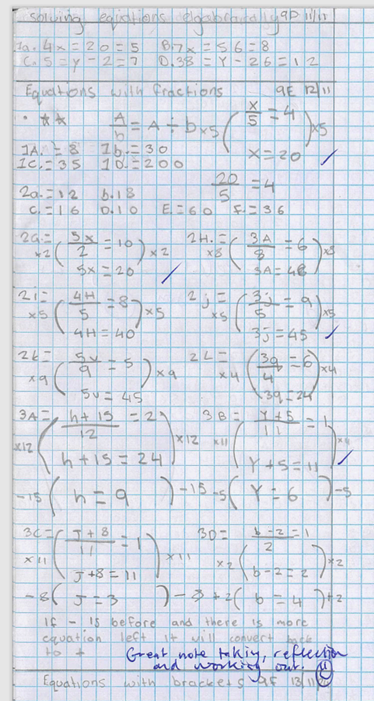 solving equations algebraically 9D 11/11
1a. 4x = 20 = 5 B. 7x = 56 = 8
C. 5 = y - 2 = 7 D. 38 = Y - 26 = 12
Equations with fractions 9E 12/11
. ** A/b = A ÷ b x5 ( x/5 = 4 ) x5
1A. = 8 1b. = 30 x = 20
1C. = 35 1D. = 200
20/5 = 4
2a. = 12 b. 18
c. = 16 D. 10 E. = 60 F. = 36
2G. = x2 ( 5x/2 = 10 ) x2 2H. = x8 ( 3A/8 = 6 ) x8
5x = 20 3A = 48
2i = x5 ( 4H/5 = 8 ) x5 2j = x5 ( 3j/5 = 9 ) x5
4H = 40 3j = 45
2k = x9 ( 5v/9 = 5 ) x9 2L = x4 ( 3q/4 = 6 ) x4
5v = 45 3q = 24
3A = x12 ( h + 15/12 = 2 ) x12 3B = x11 ( Y + 5/11 = 1 ) x11
h + 15 = 24 Y + 5 = 11
-15 ( h = 9 ) -15 -5 ( Y = 6 ) -5
3C = x11 ( J + 8/11 = 1 ) x11 3D = x2 ( b - 2/2 = 1 ) x2
J + 8 = 11 b - 2 = 2
-8 ( J = 3 ) - +2 ( b = 4 ) +2
If - is before and there is more
equation left it will convert back
to +
Great note taking, reflection
and working out.
Equations with brackets 9F 13/11